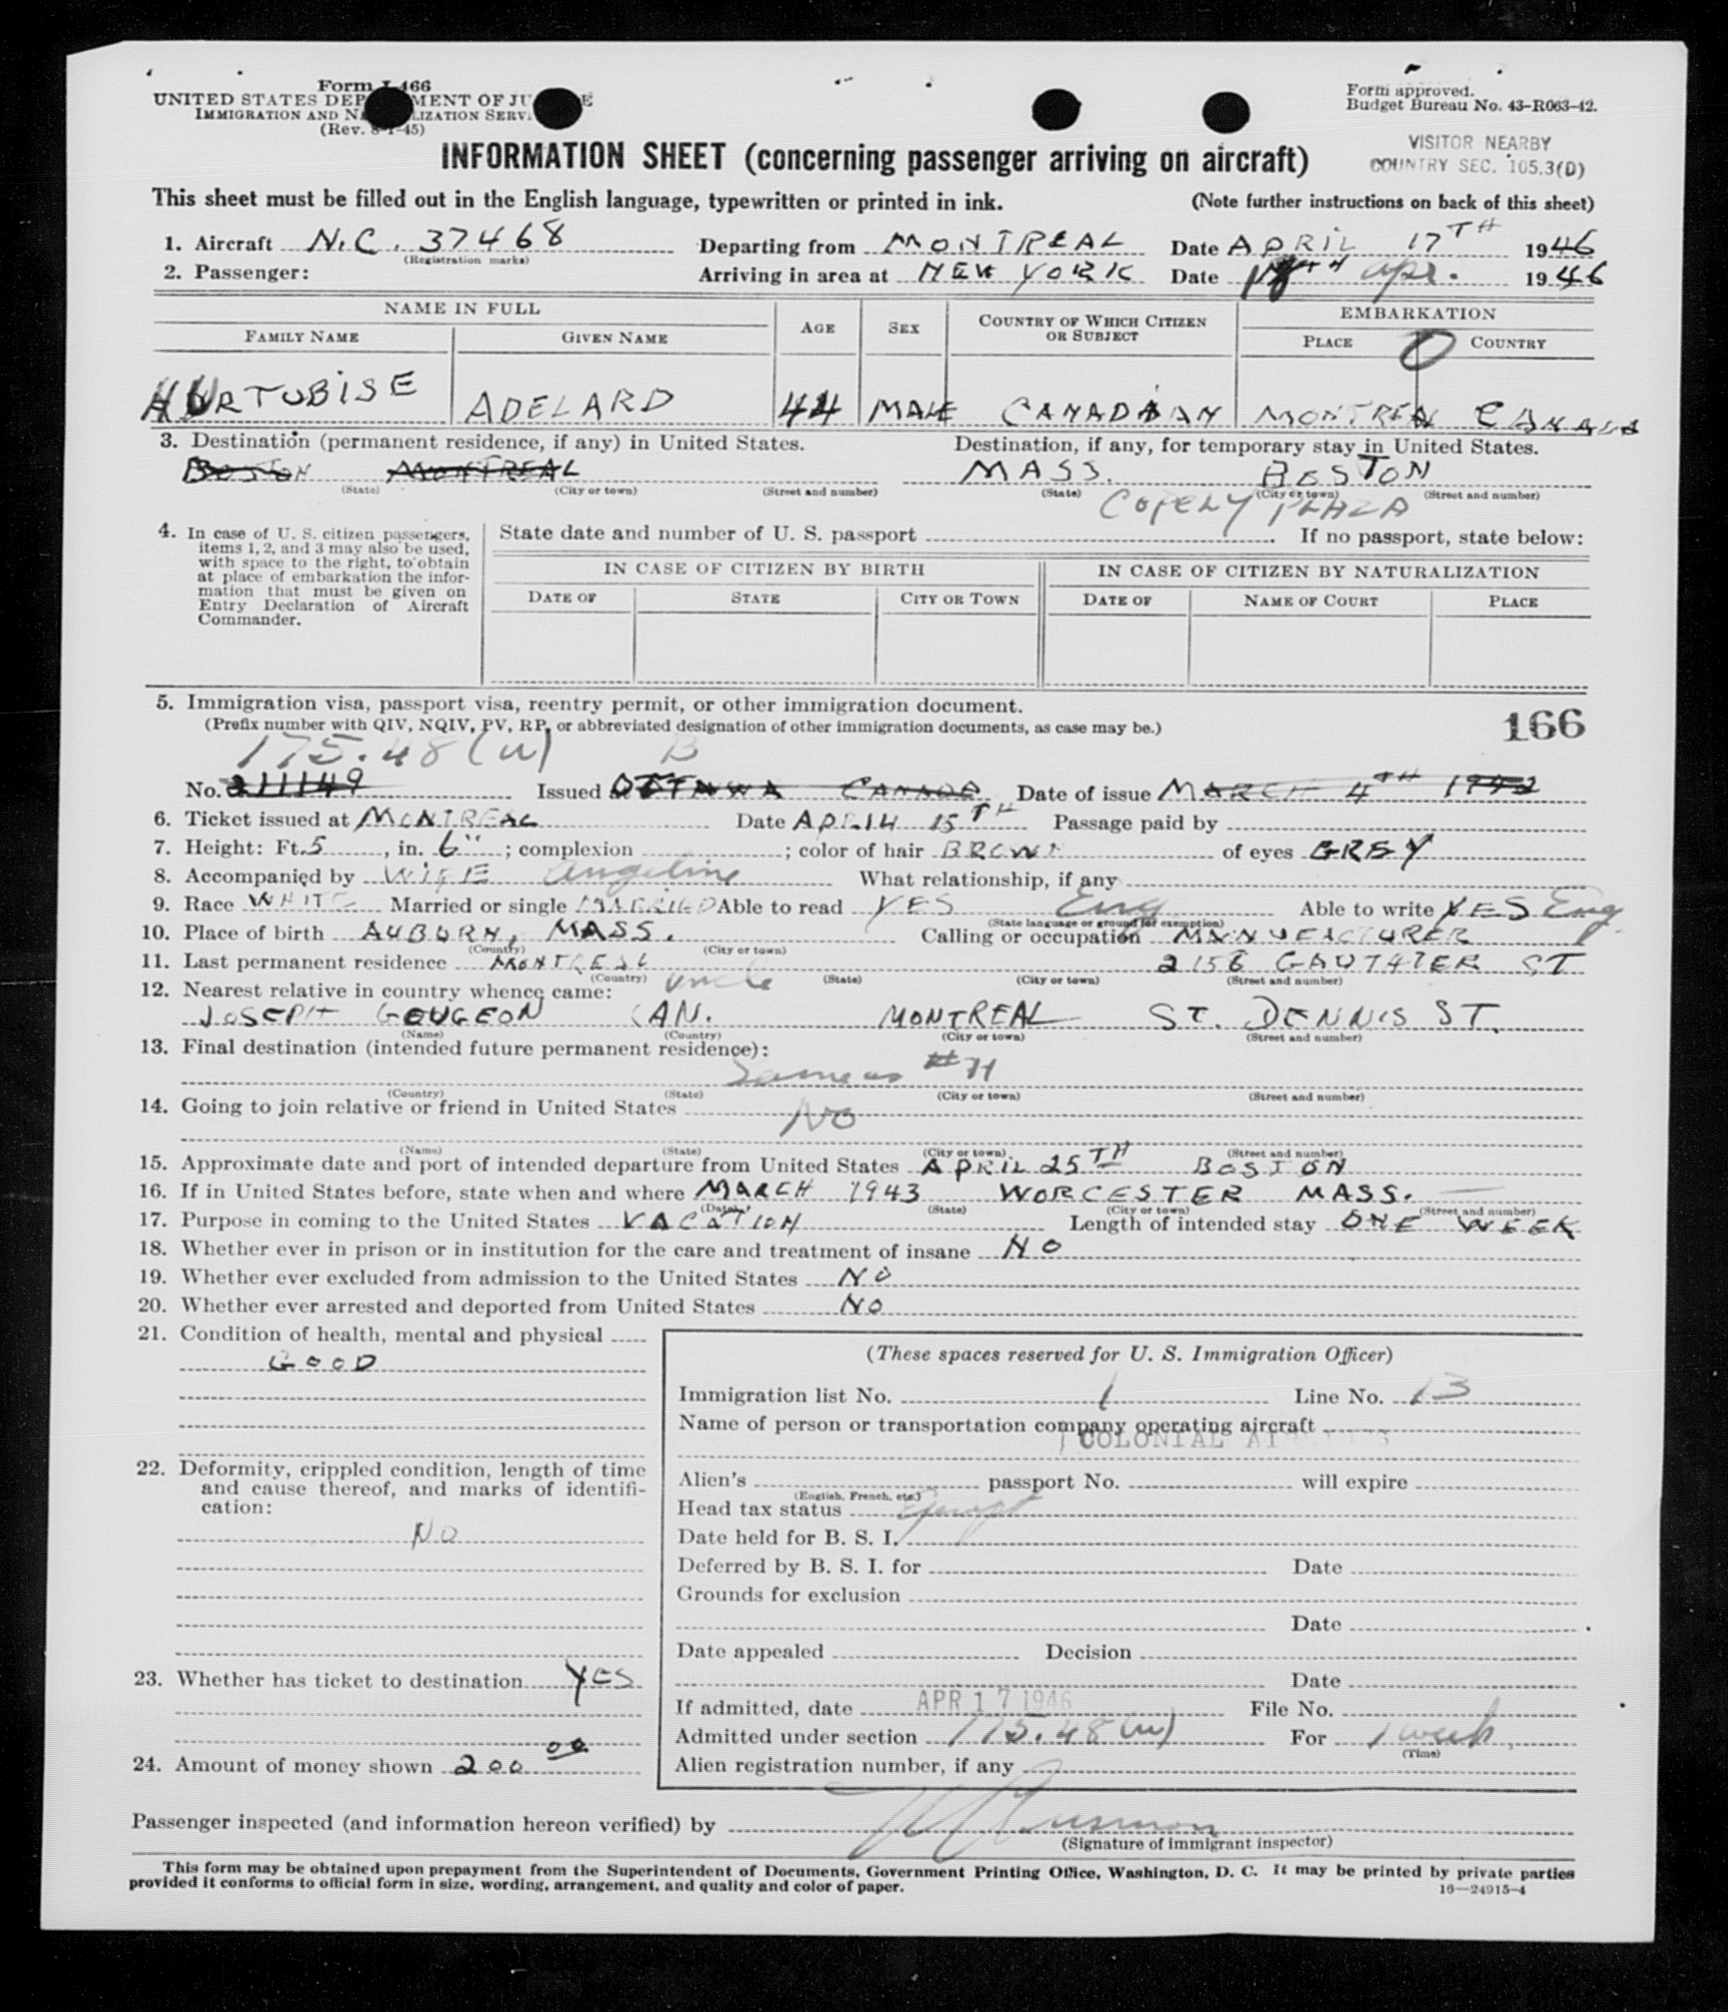 Form I-466
UNITED STATES DEPARTMENT OF JUSTICE
IMMIGRATION AND NATURALIZATION SERVICE
(Rev. 8-1-45)
Form approved.
Budget Bureau No. 43-R063-42.
VISITOR NEARBY
COUNTRY SEC. 105.3(D)
INFORMATION SHEET (concerning passenger arriving on aircraft)
This sheet must be filled out in the English language, typewritten or printed in ink. (Note further instructions on back of this sheet)
1. Aircraft N.C. 37468 Departing from MONTREAL Date APRIL 17TH 1946
(Registration marks)
2. Passenger: Arriving in area at NEW YORK Date 17TH Apr. 1946
NAME IN FULL AGE SEX COUNTRY OF WHICH CITIZEN OR SUBJECT EMBARKATION
FAMILY NAME GIVEN NAME PLACE COUNTRY
HURTUBISE ADELARD 44 MALE CANADIAN MONTREAL CANADA
3. Destination (permanent residence, if any) in United States. Destination, if any, for temporary stay in United States.
BOSTON MONTREAL MASS. BOSTON
(State) (City or town) (Street and number) (State) (City or town) (Street and number)
COPELY PLAZA
4. In case of U. S. citizen passengers, items 1, 2, and 3 may also be used, with space to the right, to obtain at place of embarkation the information that must be given on Entry Declaration of Aircraft Commander.
State date and number of U. S. passport . If no passport, state below:
IN CASE OF CITIZEN BY BIRTH IN CASE OF CITIZEN BY NATURALIZATION
DATE OF STATE CITY OR TOWN DATE OF NAME OF COURT PLACE
5. Immigration visa, passport visa, reentry permit, or other immigration document.
(Prefix number with QIV, NQIV, PV, RP, or abbreviated designation of other immigration documents, as case may be.)
166
175.48(w) B
No. 211149 Issued at OTTAWA CANADA Date of issue MARCH 4TH 1942
6. Ticket issued at MONTREAL Date APRIL 15TH Passage paid by
7. Height: Ft. 5, in. 6"; complexion ; color of hair BROWN of eyes GREY
8. Accompanied by WIFE Angeline What relationship, if any
9. Race WHITE Married or single MARRIED Able to read YES Eng Able to write YES Eng.
(State language or ground for exemption)
10. Place of birth AUBURN, MASS. Calling or occupation MANUFACTURER
(Country) (City or town)
11. Last permanent residence MONTREAL 2156 GAUTHIER ST
(Country) (State) (City or town) (Street and number)
12. Nearest relative in country whence came: uncle
JOSEPH GOUGEON CAN. MONTREAL ST. DENNIS ST.
(Name) (Country) (City or town) (Street and number)
13. Final destination (intended future permanent residence):
Same as #11
(Country) (State) (City or town) (Street and number)
14. Going to join relative or friend in United States
NO
(Name) (State) (City or town) (Street and number)
15. Approximate date and port of intended departure from United States APRIL 25TH BOSTON
16. If in United States before, state when and where MARCH 1943 WORCESTER MASS.
(Date) (State) (City or town) (Street and number)
17. Purpose in coming to the United States VACATION Length of intended stay ONE WEEK
18. Whether ever in prison or in institution for the care and treatment of insane NO
19. Whether ever excluded from admission to the United States NO
20. Whether ever arrested and deported from United States NO
21. Condition of health, mental and physical
GOOD
22. Deformity, crippled condition, length of time and cause thereof, and marks of identification:
NO
23. Whether has ticket to destination YES
24. Amount of money shown 200 00
(These spaces reserved for U. S. Immigration Officer)
Immigration list No. 1 Line No. 13
Name of person or transportation company operating aircraft
COLONIAL AIRLINES
Alien's passport No. will expire
(English, French, etc.)
Head tax status Exempt
Date held for B. S. I.
Deferred by B. S. I. for Date
Grounds for exclusion
Date
Date appealed Decision
Date
If admitted, date APR 17 1946 File No.
Admitted under section 175.48(w) For 1 week
(Time)
Alien registration number, if any
Passenger inspected (and information hereon verified) by
(Signature of immigrant inspector)
This form may be obtained upon prepayment from the Superintendent of Documents, Government Printing Office, Washington, D. C. It may be printed by private parties
provided it conforms to official form in size, wording, arrangement, and quality and color of paper.
16—24915-4